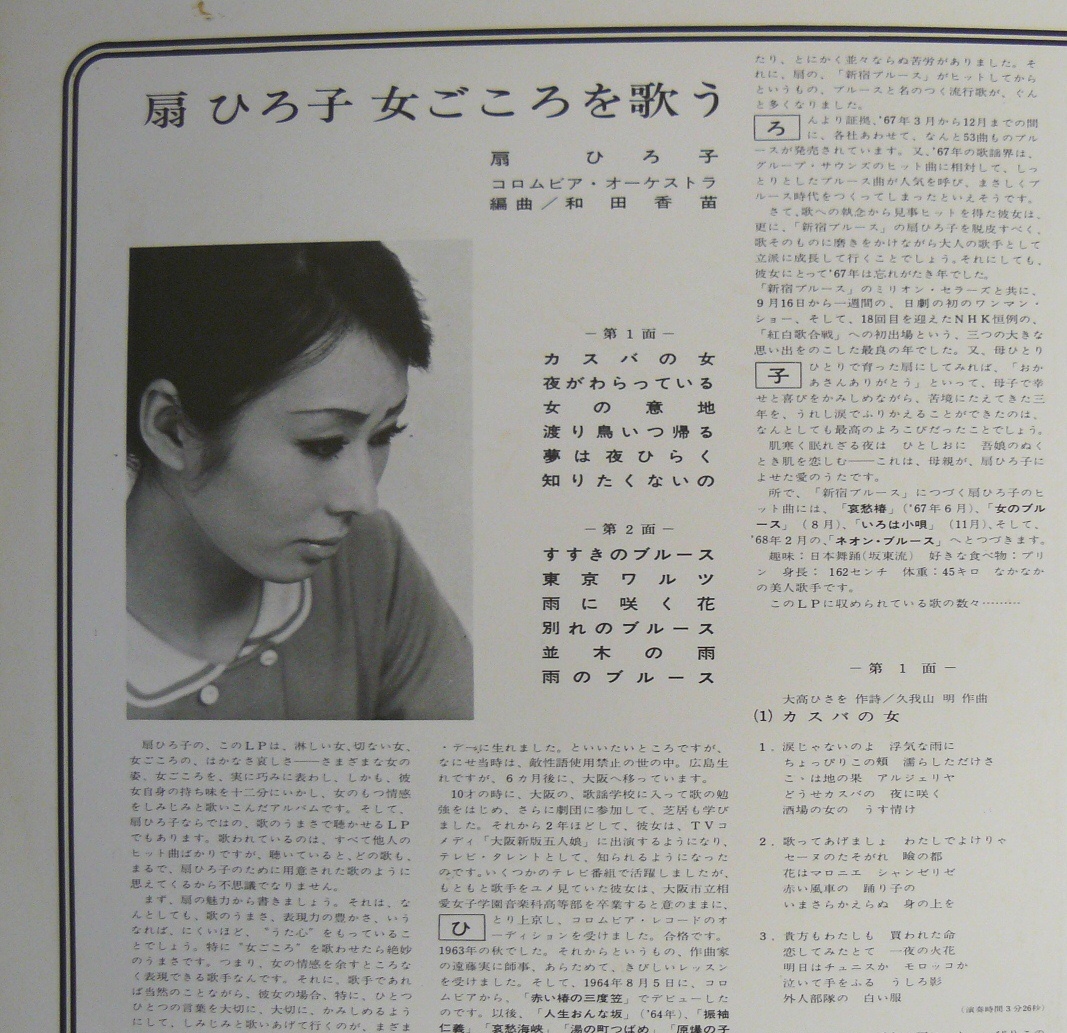 扇 ひろ子 女ごころを歌う
扇 ひろ子
コロムビア・オーケストラ
編曲／和田香苗
— 第1面 —
カスバの女
夜がわらっている
女の意地
渡り鳥いつ帰る
夢は夜ひらく
知りたくないの
— 第2面 —
すすきのブルース
東京ワルツ
雨に咲く花
別れのブルース
並木の雨
雨のブルース
扇ひろ子の、このLPは、淋しい女、切ない女、
女ごころの、はかなさ哀しさ——さまざまな女の
姿、女ごころを、実に巧みに表わし、しかも、彼
女自身の持ち味を十二分にいかし、女のもつ情感
をしみじみと歌いこんだアルバムです。そして、
扇ひろ子ならではの、歌のうまさで聴かせるLP
でもあります。歌われているのは、すべて他人の
ヒット曲ばかりですが、聴いていると、どの歌も、
まるで、扇ひろ子のために用意された歌のように
思えてくるから不思議でなりません。
まず、扇の魅力から書きましょう。それは、な
んとしても、歌のうまさ、表現力の豊かさ、いう
なれば、にくいほど、“うた心”をもっているこ
とでしょう。特に“女ごころ”を歌わせたら絶妙
のうまさです。つまり、女の情感を余すところな
く表現できる歌手なんです。それに、歌手であれ
ば当然のことながら、彼女の場合、特に、ひとつ
ひとつの言葉を大切に、大切に、かみしめるよう
にして、しみじみと歌いあげて行くのが、まざま
・デーに生れました。といいたいところですが、
なにせ当時は、敵性語使用禁止の世の中。広島生
れですが、6カ月後に、大阪へ移っています。
10才の時に、大阪の、歌謡学校に入って歌の勉
強をはじめ、さらに劇団に参加して、芝居も学び
ました。それから2年ほどして、彼女は、TVコ
メディ「大阪新版五人娘」に出演するようになり、
テレビ・タレントとして、知られるようになった
のです。いくつかのテレビ番組で活躍しましたが、
もともと歌手をユメ見ていた彼女は、大阪市立相
愛女子学園音楽科高等部を卒業すると意のままに、
ひ とり上京し、コロムビア・レコードのオ
ーディションを受けました。合格です。
1963年の秋でした。それからというもの、作曲家
の遠藤実に師事、あらためて、きびしいレッスン
を受けました。そして、1964年8月5日に、コロ
ムビアから、「赤い椿の三度笠」でデビューした
のです。以後、「人生おんな坂」（’64年）、「振袖
仁義」「哀愁海峡」「湯の町つばめ」「原爆の子
たり、とにかく並々ならぬ苦労がありました。そ
れに、扇の、「新宿ブルース」がヒットしてから
というもの、ブルースと名のつく流行歌が、ぐん
と多くなりました。
ろ んより証拠、’67年3月から12月までの間
に、各社あわせて、なんと53曲ものブル
ースが発売されています。又、’67年の歌謡界は、
グループ・サウンズのヒット曲に相対して、しっ
とりとしたブルース曲が人気を呼び、まさしくブ
ルース時代をつくってしまったといえそうです。
さて、歌への執念から見事ヒットを得た彼女は、
更に、「新宿ブルース」の扇ひろ子を脱皮すべく、
歌そのものに磨きをかけながら大人の歌手として
立派に成長して行くことでしょう。それにしても、
彼女にとって’67年は忘れがたき年でした。
「新宿ブルース」のミリオン・セラーズと共に、
9月16日から一週間の、日劇の初のワンマン・
ショー、そして、18回目を迎えたNHK恒例の、
「紅白歌合戦」への初出場という、三つの大きな
思い出をのこした最良の年でした。又、母ひとり
子 ひとりで育った扇にしてみれば、「おか
あさんありがとう」といって、母子で幸
せと喜びをかみしめながら、苦境にたえてきた三
年を、うれし涙でふりかえることができたのは、
なんとしても最高のよろこびだったことでしょう。
肌寒く眠れざる夜は ひとしおに 吾娘のぬく
とき肌を恋しむ——これは、母親が、扇ひろ子に
よせた愛のうたです。
所で、「新宿ブルース」につづく扇ひろ子のヒ
ット曲には、「哀愁椿」（’67年6月）、「女のブル
ース」（8月）、「いろは小唄」（11月）、そして、
’68年2月の、「ネオン・ブルース」へとつづきます。
趣味：日本舞踊（坂東流） 好きな食べ物：プリ
ン 身長：162センチ 体重：45キロ なかなか
の美人歌手です。
このLPに収められている歌の数々………
— 第1面 —
大高ひさを 作詩／久我山 明 作曲
(1) カスバの女
1．涙じゃないのよ 浮気な雨に
ちょっぴりこの頬 濡らしただけさ
こゝは地の果 アルジェリヤ
どうせカスバの 夜に咲く
酒場の女の うす情け
2．歌ってあげましょ わたしでよけりゃ
セーヌのたそがれ 瞼の都
花はマロニエ シャンゼリゼ
赤い風車の 踊り子の
いまさらかえらぬ 身の上を
3．貴方もわたしも 買われた命
恋してみたとて 一夜の火花
明日はチュニスか モロッコか
泣いて手をふる うしろ影
外人部隊の 白い服
（演奏時間3分26秒）